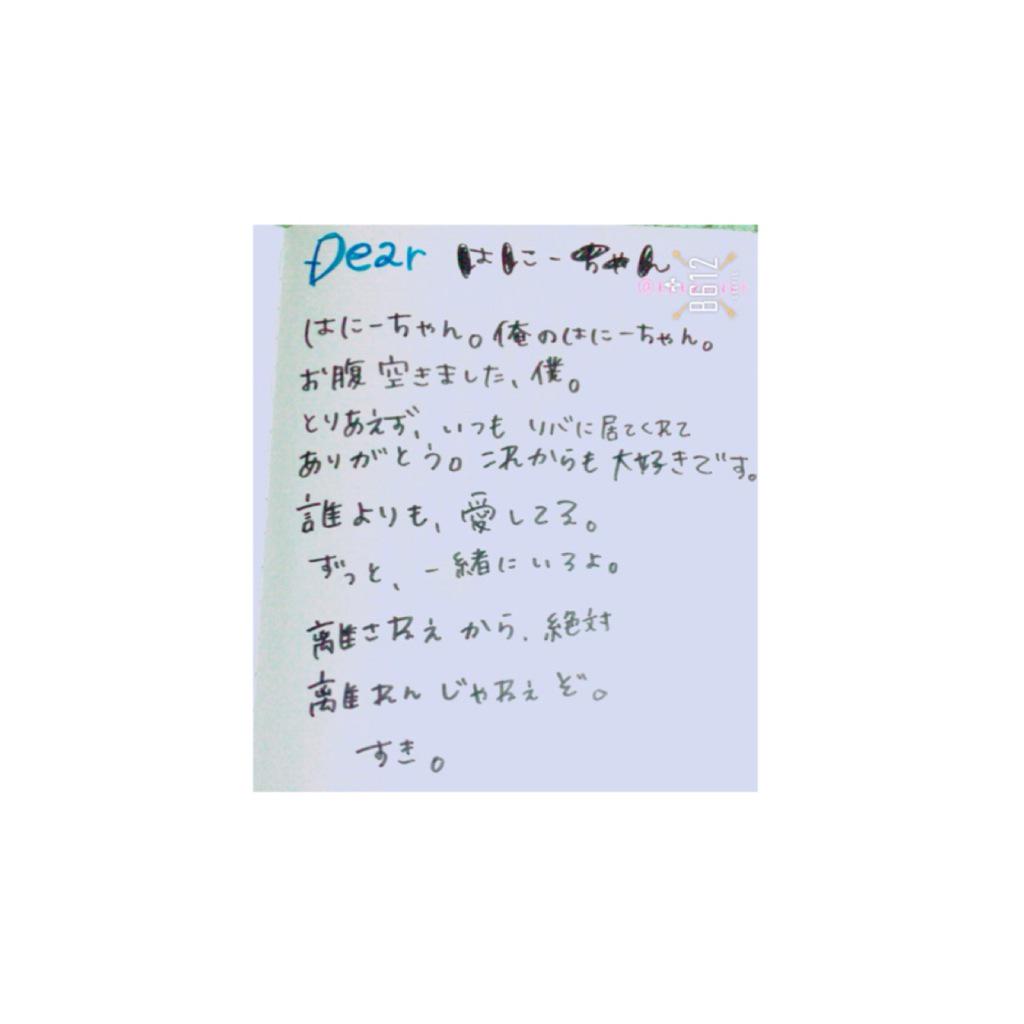 Dear はにーちゃん
B612
はにーちゃん。俺のはにーちゃん。
お腹空きました、僕。
とりあえず、いつも リバに居てくれて
ありがとう。これからも 大好きです。
誰よりも、愛してる。
ずっと、一緒にいろよ。
離さねえから、絶対
離れんじゃねえぞ。
すき。